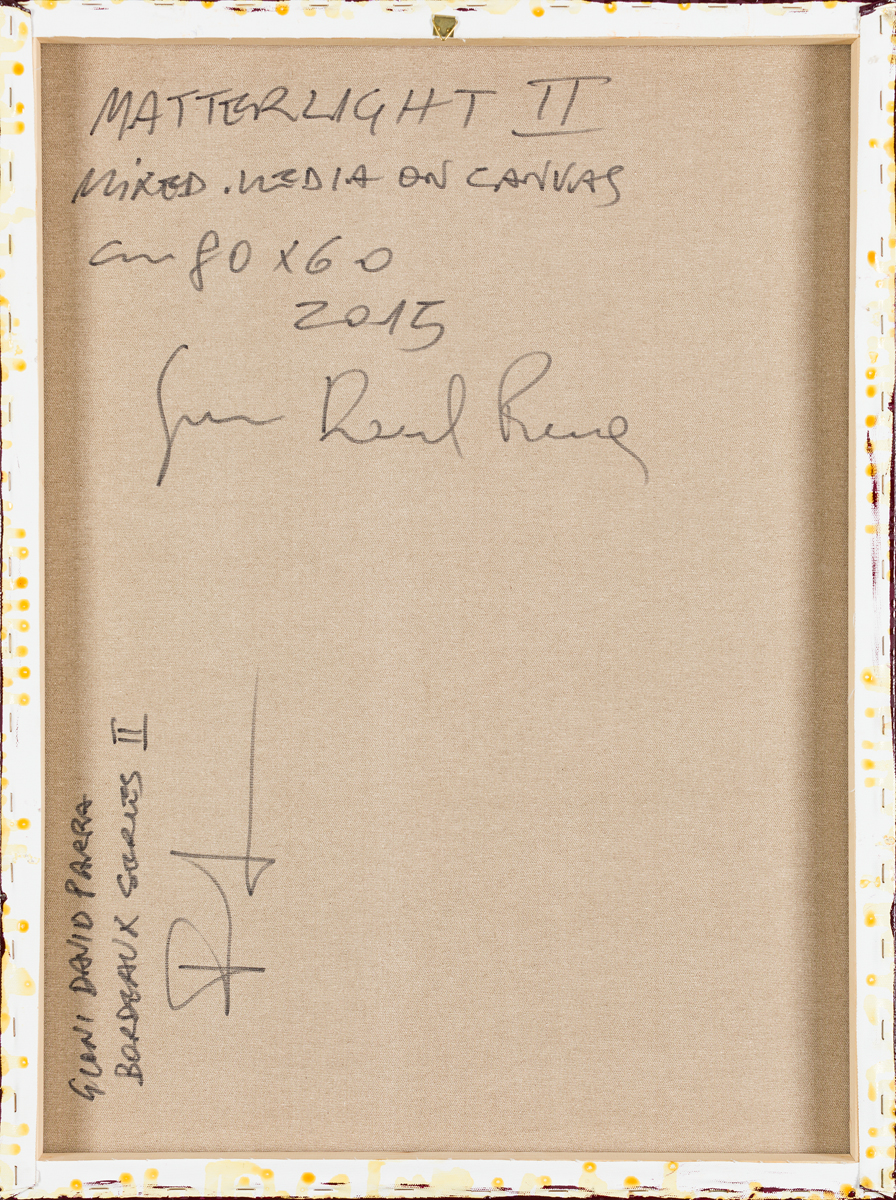 MATTERLIGHT II
MIXED MEDIA ON CANVAS
cm 80 x 60
2015
GIONI DAVID PARRA
BORDEAUX SERIES II